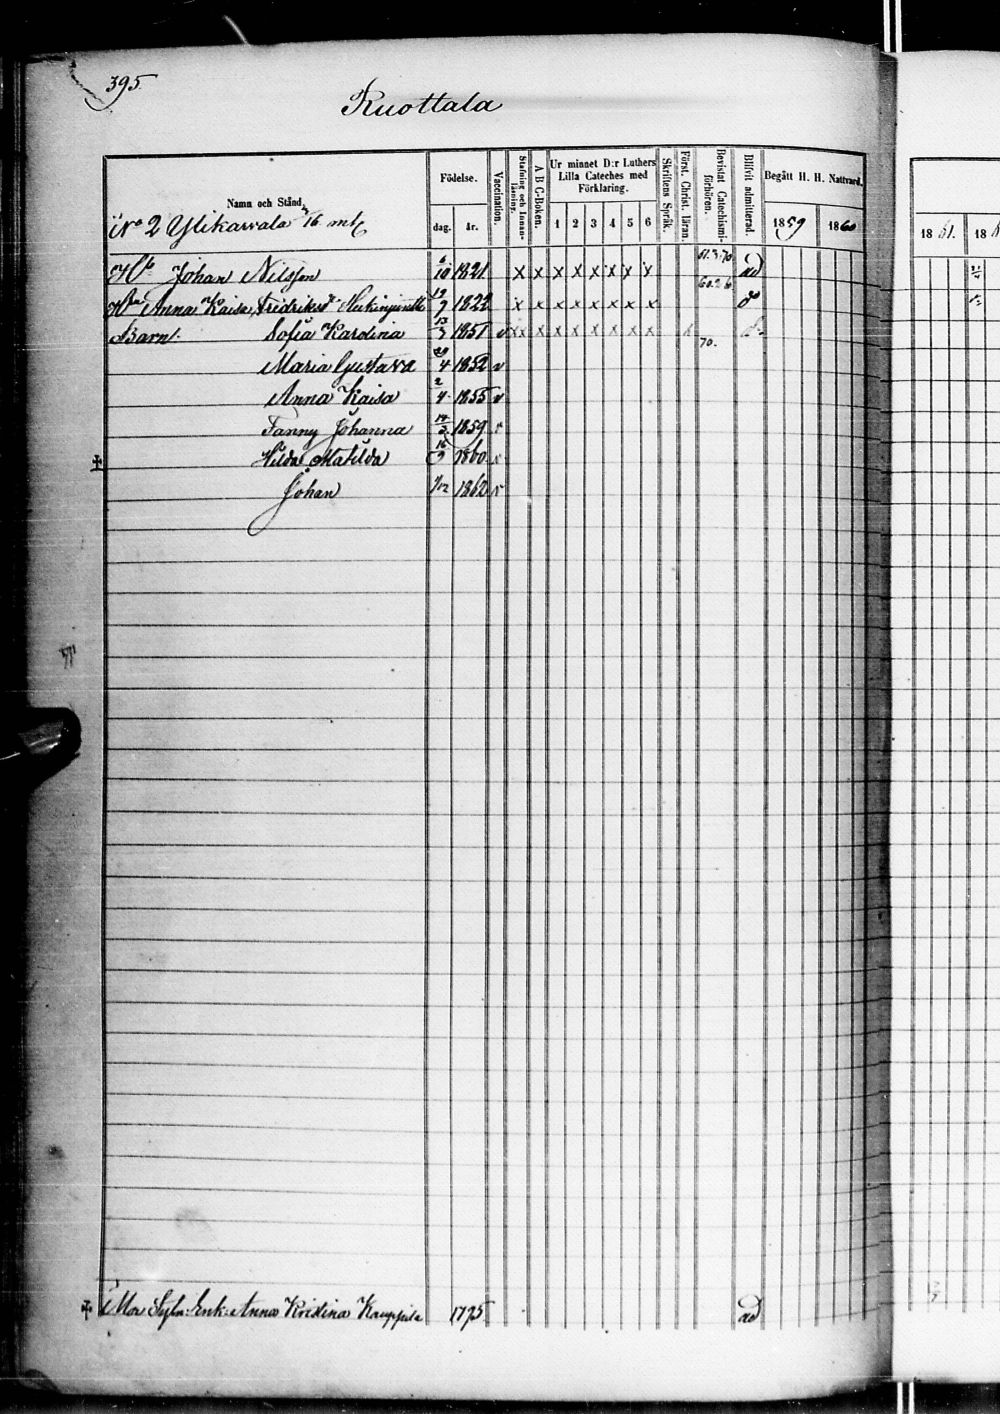 395.
Ruottala
Namn och Stånd. Födelse. Vaccination. Stafning och Innan-läsning. A B C-Boken. Ur minnet D:r Luthers Lilla Cateches med Förklaring. Skriftens Språk. Först. Christ. läran. Bevistat Catechismi-förhören. Blifvit admitterad. Begått H. H. Nattvard.
dag. år. 1 2 3 4 5 6 1859 1860 1861.
No 2 Ylikarvala
Johan Nilsson 6/10 1821 x x x x x x x x ad
Anna Kaisa Fredriksdr 1822 x x x x x x x x
Barn: Sofia Karolina 13/3 1851 v x x x x x x x x
70.
Maria Gustava 29/4 1852 v
Anna Kaisa 2/4 1855 v
Fanny Johanna 14/3 1859 v
Hilda Matilda 16/9 1860
Johan 1/12 1862
Enk: Anna Kristina Kauppila 1775 ad